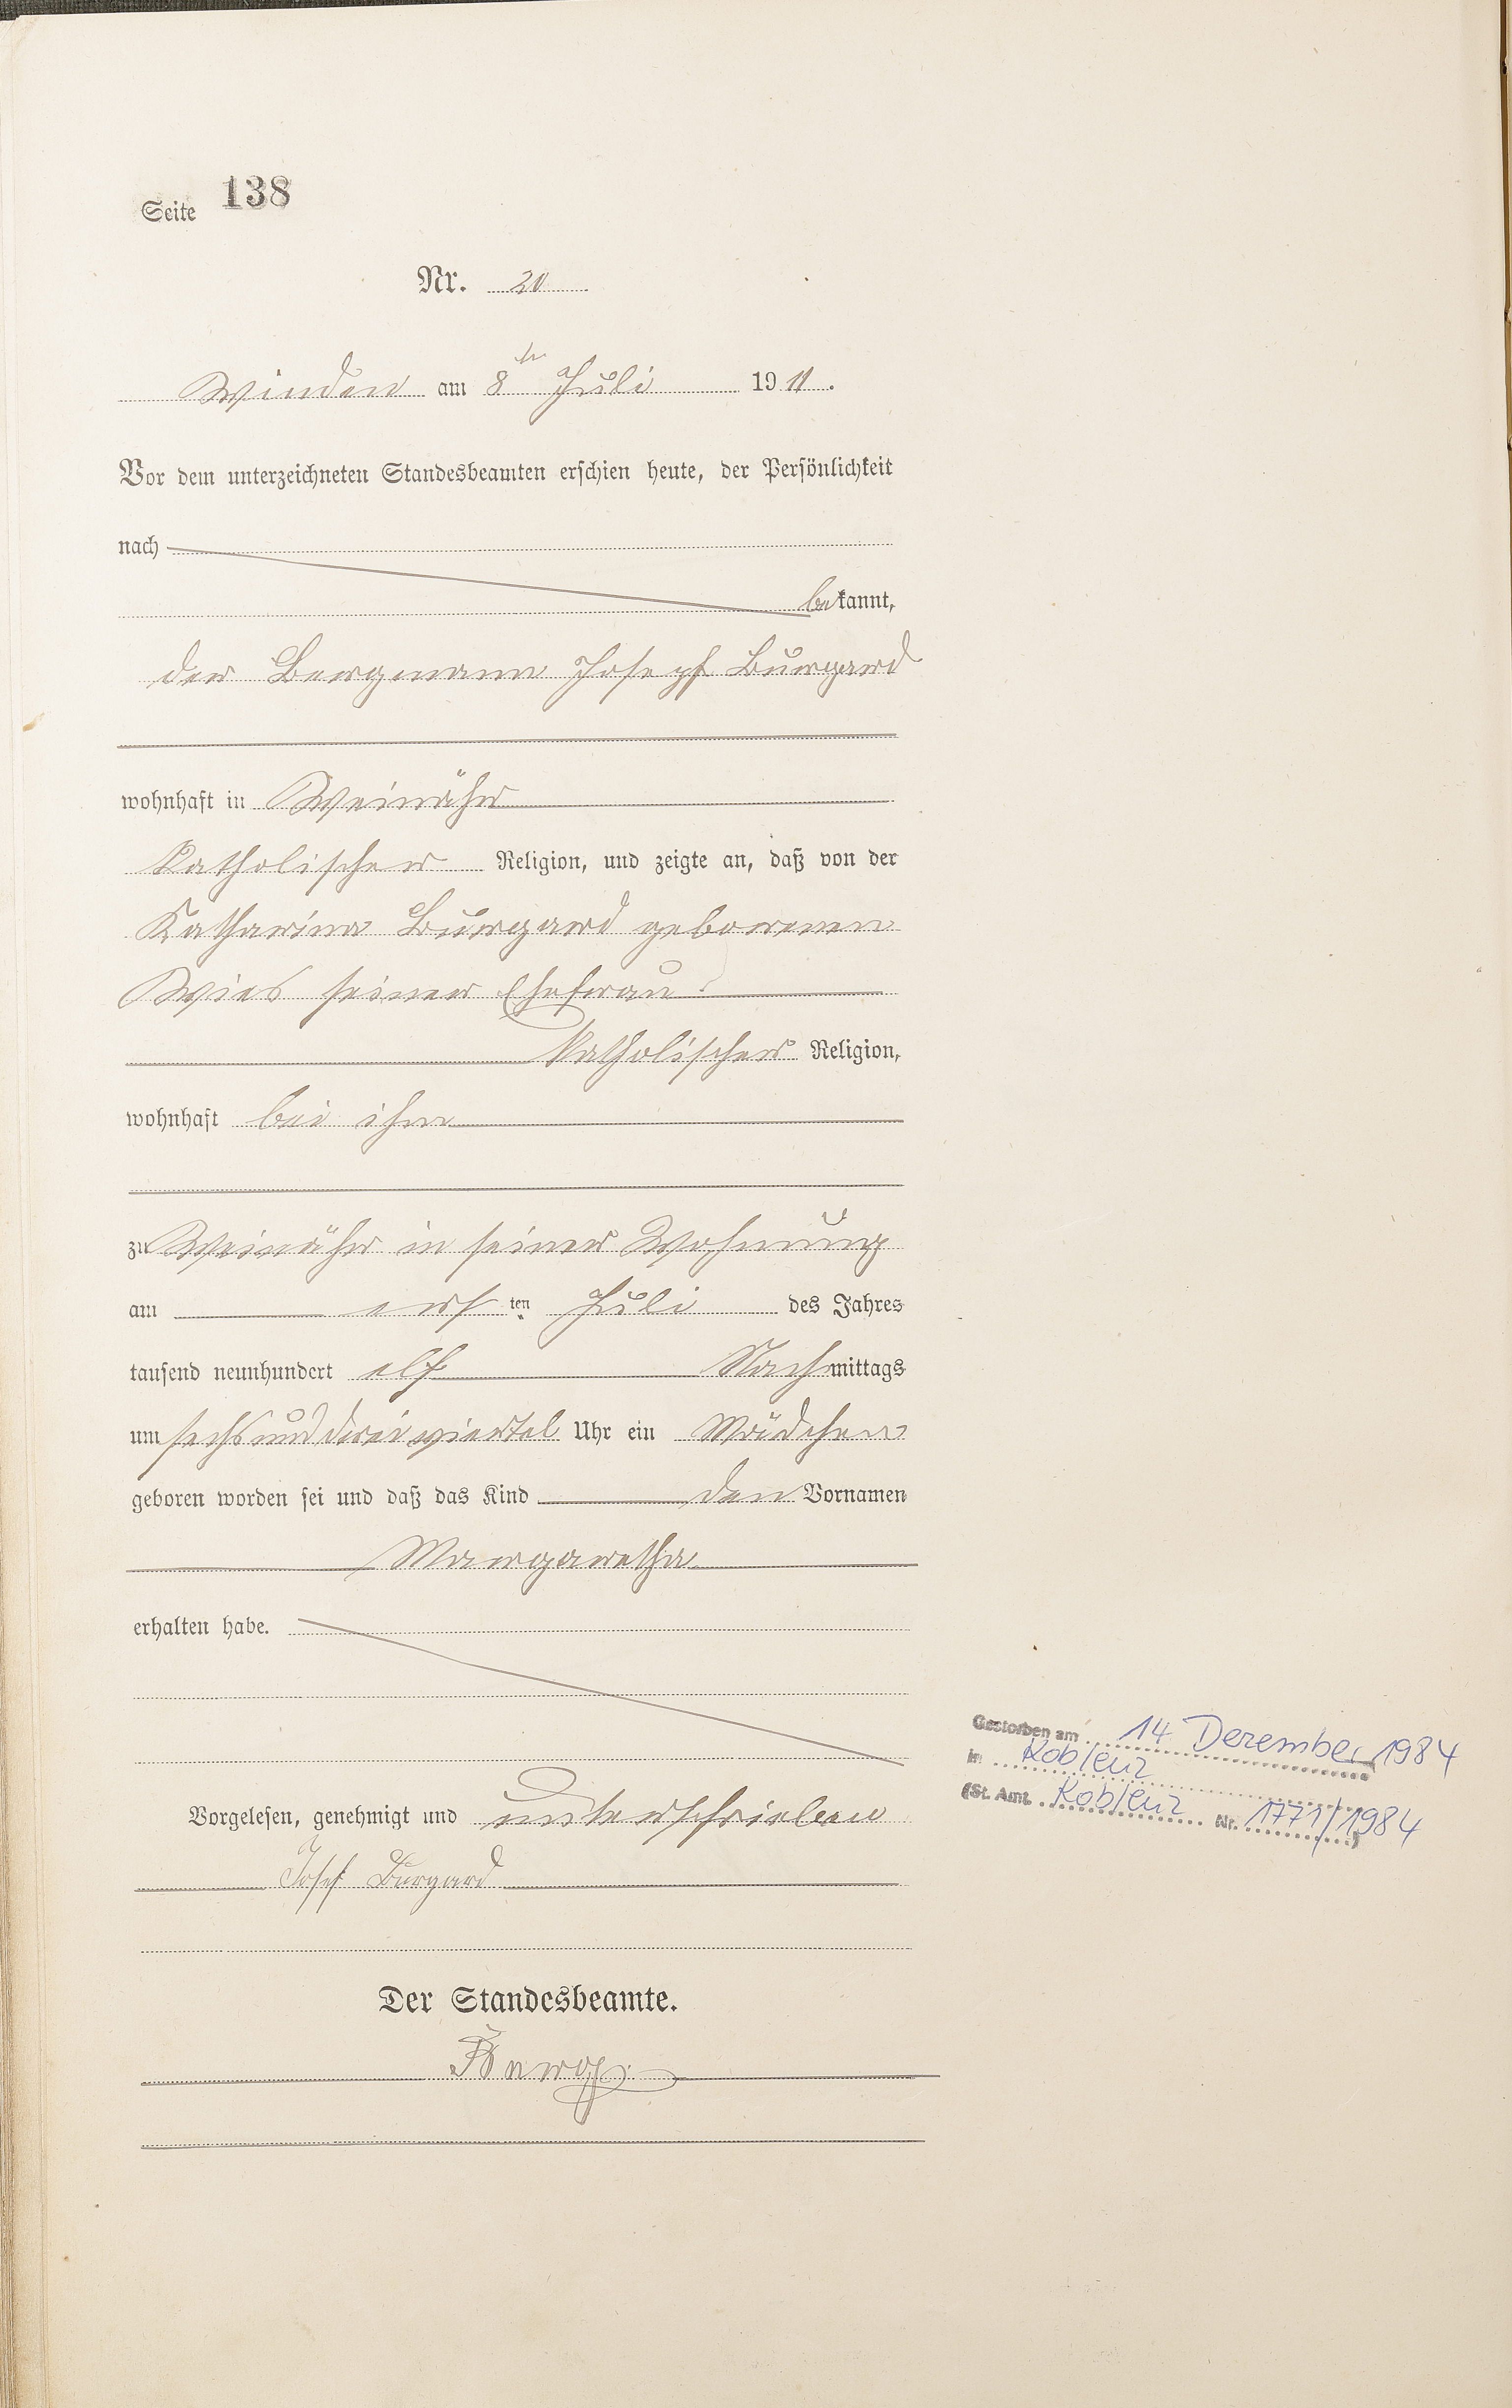 Seite 138
Nr. 20
Winden am 8ten Juli 1911.
Vor dem unterzeichneten Standesbeamten erschien heute, der Persönlichkeit
nach
bekannt,
der Bergmann Joseph Burgard
wohnhaft in Weinähr
katholischer Religion, und zeigte an, daß von der
Katharina Burgard geborenen
Wies seiner Ehefrau
katholischer Religion,
wohnhaft bei ihm
zu Weinähr in seiner Wohnung
am ersten Juli des Jahres
tausend neunhundert elf Nachmittags
um sechs und dreiviertel Uhr ein Mädchen
geboren worden sei und daß das Kind den Vornamen
Margaretha
erhalten habe.
Vorgelesen, genehmigt und unterschrieben
Josef Burgard
Der Standesbeamte.
Gestorben am 14 Dezember 1984
in Koblenz
(St. Amt. Koblenz Nr. 1771/1984)